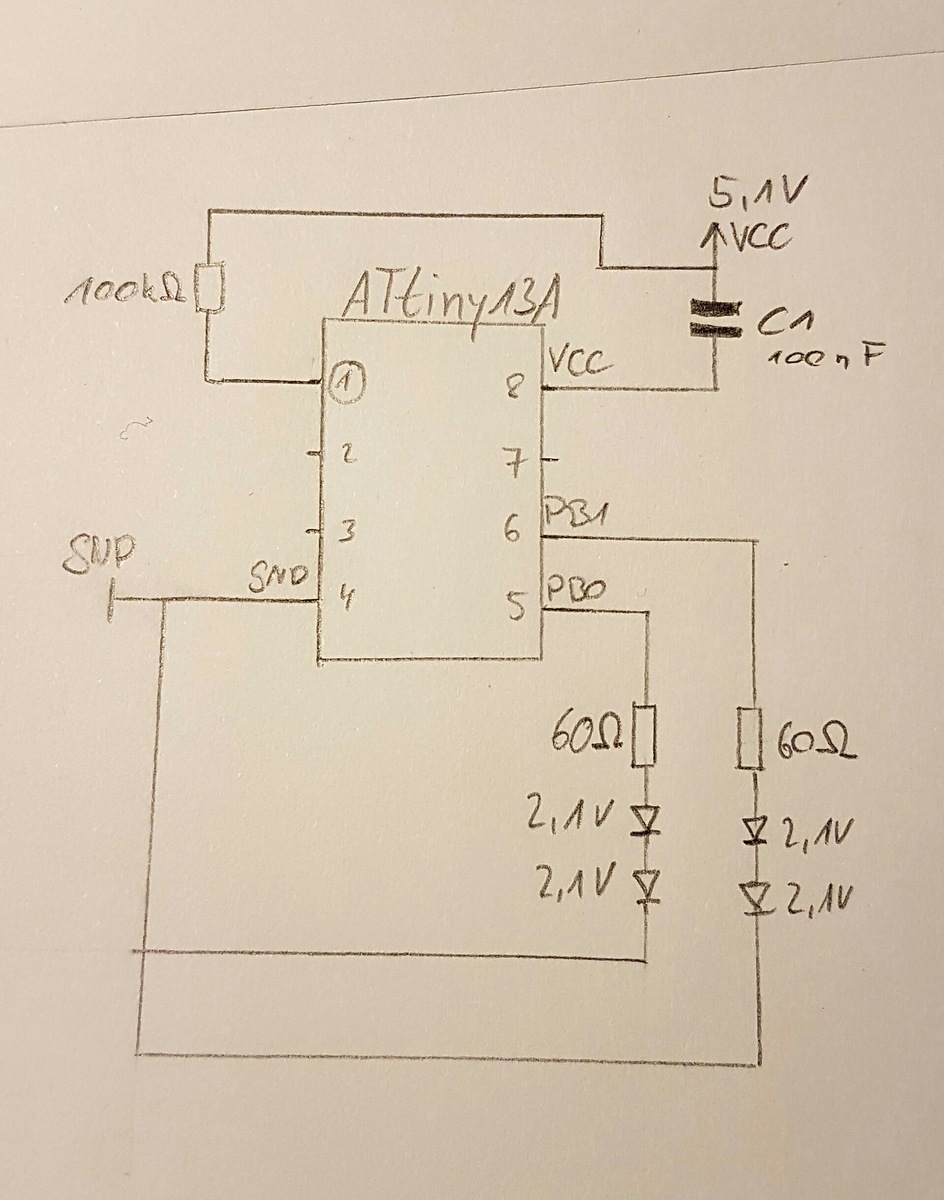 5,1V
VCC
100kΩ
ATtiny13A
C1
100nF
VCC
1
8
2
7
3
6
PB1
GND
GND
4
5
PB0
60Ω
60Ω
2,1V
2,1V
2,1V
2,1V